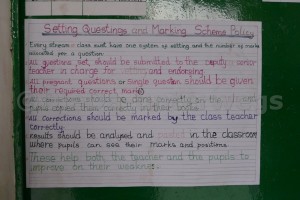 Setting Questings and Marking Scheme Policy
Every stream or class must have one system of setting and the number of marks
allocated for a question
All questions set, should be submitted to the deputy senior
teacher in charge for editing and endorsing
All questions or single question should be given
their required correct marks
All corrections should be done directly on the
All corrections should be marked by the class teacher
correctly
Results should be analysed and posted in the classroom
where pupils can see their marks and positions
These help both the teacher and the pupils to
improve on their weakness